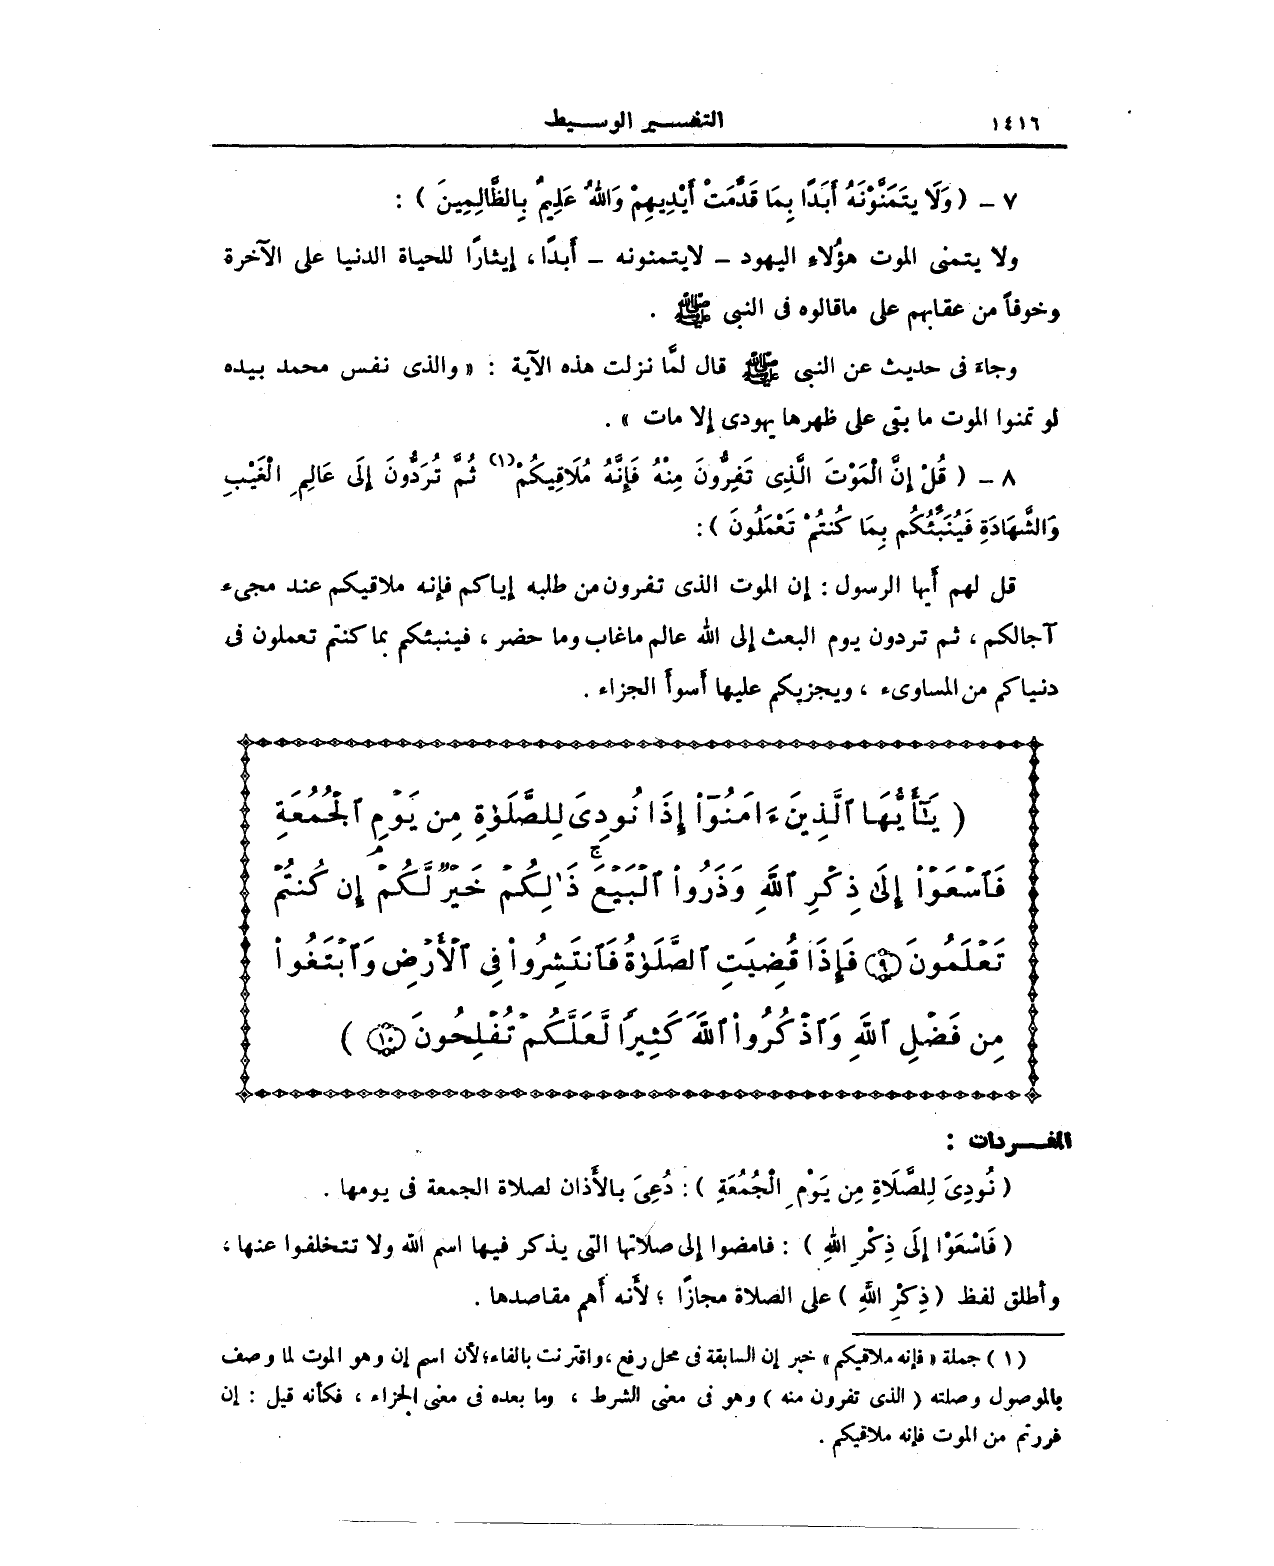 ١٤١٦
التفسير الوسيط
٧ - ( وَلَا يَتَمَنَّوْنَهُ أَبَدًا بِمَا قَدَّمَتْ أَيْدِيهِمْ وَاللهُ عَلِيمٌ بِالظَّالِمِينَ ) :
ولا يتمنى الموت هؤُلاءِ اليهود - لايتمنونه - أَبدًا ، إِيثارًا للحياة الدنيا على الآخرة
وخوفاً من عقابهم على ماقالوه فى النبى ﷺ .
وجاءَ فى حديث عن النبى ﷺ قال لمَّا نزلت هذه الآية : « والذى نفس محمد بيده
لو تمنوا الموت ما بقى على ظهرها يهودى إِلا مات » .
٨ - ( قُلْ إِنَّ الْمَوْتَ الَّذِى تَفِرُّونَ مِنْهُ فَإِنَّهُ مُلَاقِيكُمْ(١) ثُمَّ تُرَدُّونَ إِلَى عَالِمِ الْغَيْبِ
وَالشَّهَادَةِ فَيُنَبِّئُكُم بِمَا كُنتُمْ تَعْمَلُونَ ) :
قل لهم أَيها الرسول : إِن الموت الذى تفرون من طلبه إِياكم فإِنه ملاقيكم عند مجىء
آجالكم ، ثم تردون يوم البعث إِلى الله عالم ماغاب وما حضر ، فينبئكم بما كنتم تعملون فى
دنياكم من المساوىء ، ويجزيكم عليها أَسوأَ الجزاء .
( يَـٰٓأَيُّهَا ٱلَّذِينَ ءَامَنُوٓا۟ إِذَا نُودِىَ لِلصَّلَوٰةِ مِن يَوْمِ ٱلْجُمُعَةِ
فَٱسْعَوْا۟ إِلَىٰ ذِكْرِ ٱللَّهِ وَذَرُوا۟ ٱلْبَيْعَ ۚ ذَٰلِكُمْ خَيْرٌ لَّكُمْ إِن كُنتُمْ
تَعْلَمُونَ ﴿٩﴾ فَإِذَا قُضِيَتِ ٱلصَّلَوٰةُ فَٱنتَشِرُوا۟ فِى ٱلْأَرْضِ وَٱبْتَغُوا۟
مِن فَضْلِ ٱللَّهِ وَٱذْكُرُوا۟ ٱللَّهَ كَثِيرًا لَّعَلَّكُمْ تُفْلِحُونَ ﴿١٠﴾ )
المفـردات :
( نُودِىَ لِلصَّلَاةِ مِن يَوْمِ الْجُمُعَةِ ) : دُعِىَ بالأَذان لصلاة الجمعة فى يومها .
( فَاسْعَوْا إِلَى ذِكْرِ اللهِ ) : فامضوا إِلى صلاتها التى يذكر فيها اسم الله ولا تتخلفوا عنها ،
وأطلق لفظ ( ذِكْرِ اللهِ ) على الصلاة مجازًا ؛ لأَنه أَهم مقاصدها .
( ١ ) جملة « فإنه ملاقيكم » خبر إن السابقة فى محل رفع ، واقترنت بالفاء؛ لأن اسم إن وهو الموت لما وصف
بالموصول وصلته ( الذى تفرون منه ) وهو فى معنى الشرط ، وما بعده فى معنى الجزاء ، فكأنه قيل : إن
فررتم من الموت فإنه ملاقيكم .